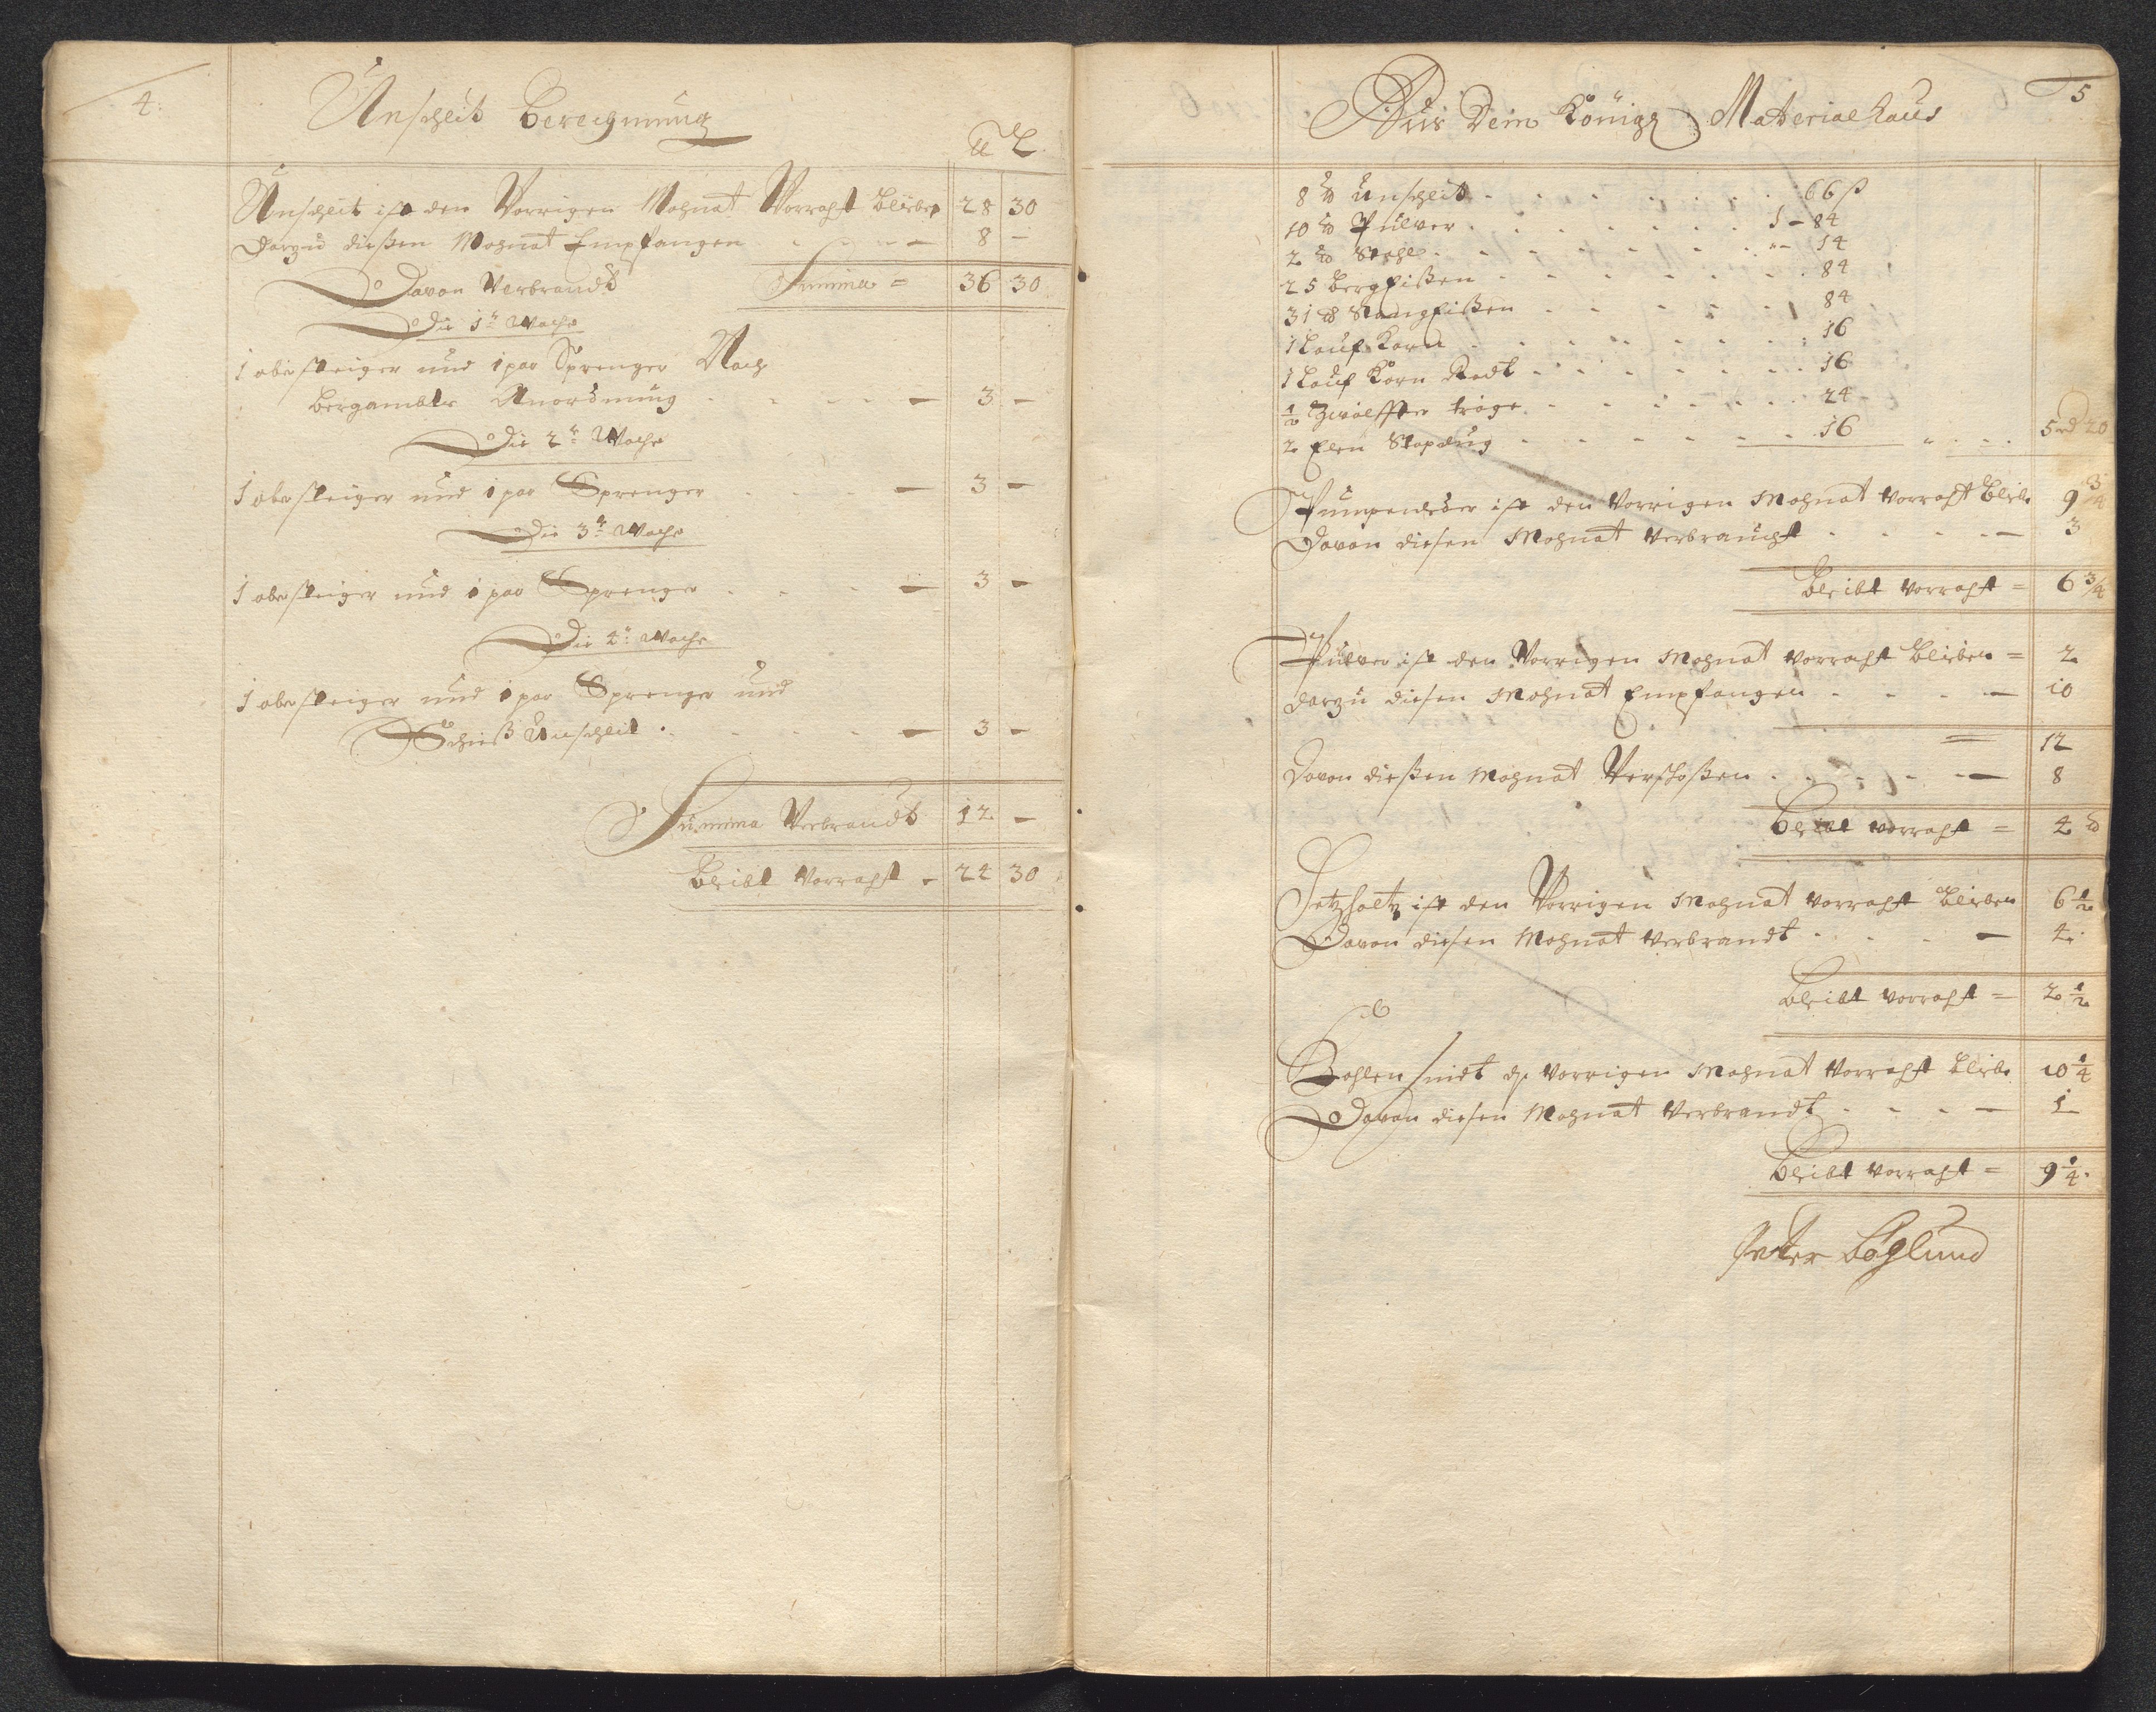 4:
Unscheit Berechnung
℔ L
Unscheit ist den Vorrigen Mohnat Vorraht bliebe 28 30
Darzu dießen Mohnat Empfangen - - - 8 -
Davon Verbrandt Summa = 36 30
Die 1te Woche
1 obersteiger und 1 par Sprenger Nach
bergambts Anordnung - - - - 3 -
Die 2te Woche
1 obersteiger und 1 par Sprenger - - - 3 -
Die 3te Woche
1 obersteiger und 1 par Sprenger - - - 3 -
Die 4te Woche
1 obersteiger und 1 par Sprenger und
Schieß Unscheit - - - - 3 -
Summa Verbrandt 12 -
Bleibt Vorraht - 24 30
5
Aus Dem Königl Materialhaus
8 ℔ Unscheit - - - - 66 ß
10 ℔ Pulver - - - - 1 - 84
2 ℔ Stahl - - - - " - 14
25 Bergfißen - - - - 84
31 Stangfißen - - - - 84
1 Lauf Korn - - - - 16
1 Lauf Korn Radt - - - - 16
1/2 Zwölffter tröge - - - - 24
2 Elen - - - - 16 - - - 5 rd 20
Pumpenleder ist den Vorrigen Mohnat Vorraht blieb 9 3/4
Davon diesen Mohnat Verbraucht - - - 3
Bleibt Vorraht = 6 3/4
Pulver ist den Vorrigen Mohnat Vorraht blieben = 2
darzu diesen Mohnat Empfangen - - - 10
= 12
Davon dießen Mohnat Verschoßen - - - 8
Bleibt Vorraht = 4 ℔
Setzholtz ist den Vorrigen Mohnat Vorraht blieben 6 1/2
Davon diesen Mohnat Verbrandt - - - 4.
Bleibt Vorraht = 2 1/2
Kohlen sindt dn Vorrigen Mohnat Vorraht bliebe 10 1/4
Davon diesen Mohnat Verbrandt - - - 1
Bleibt Vorraht = 9 1/4.
Peter Böglund